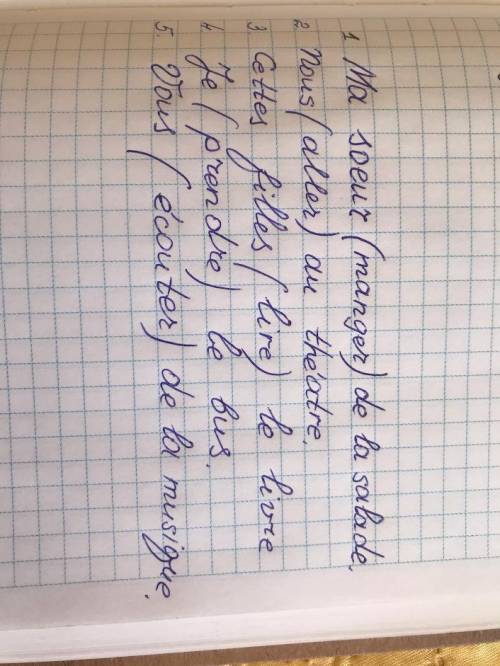 1. Ma soeur (manger) de la salade.
2. Nous (aller) au théatre.
3 Cettes filles (lire) le livre
4. Je (prendre) le bus.
5. Vous (écouter) de la musique.